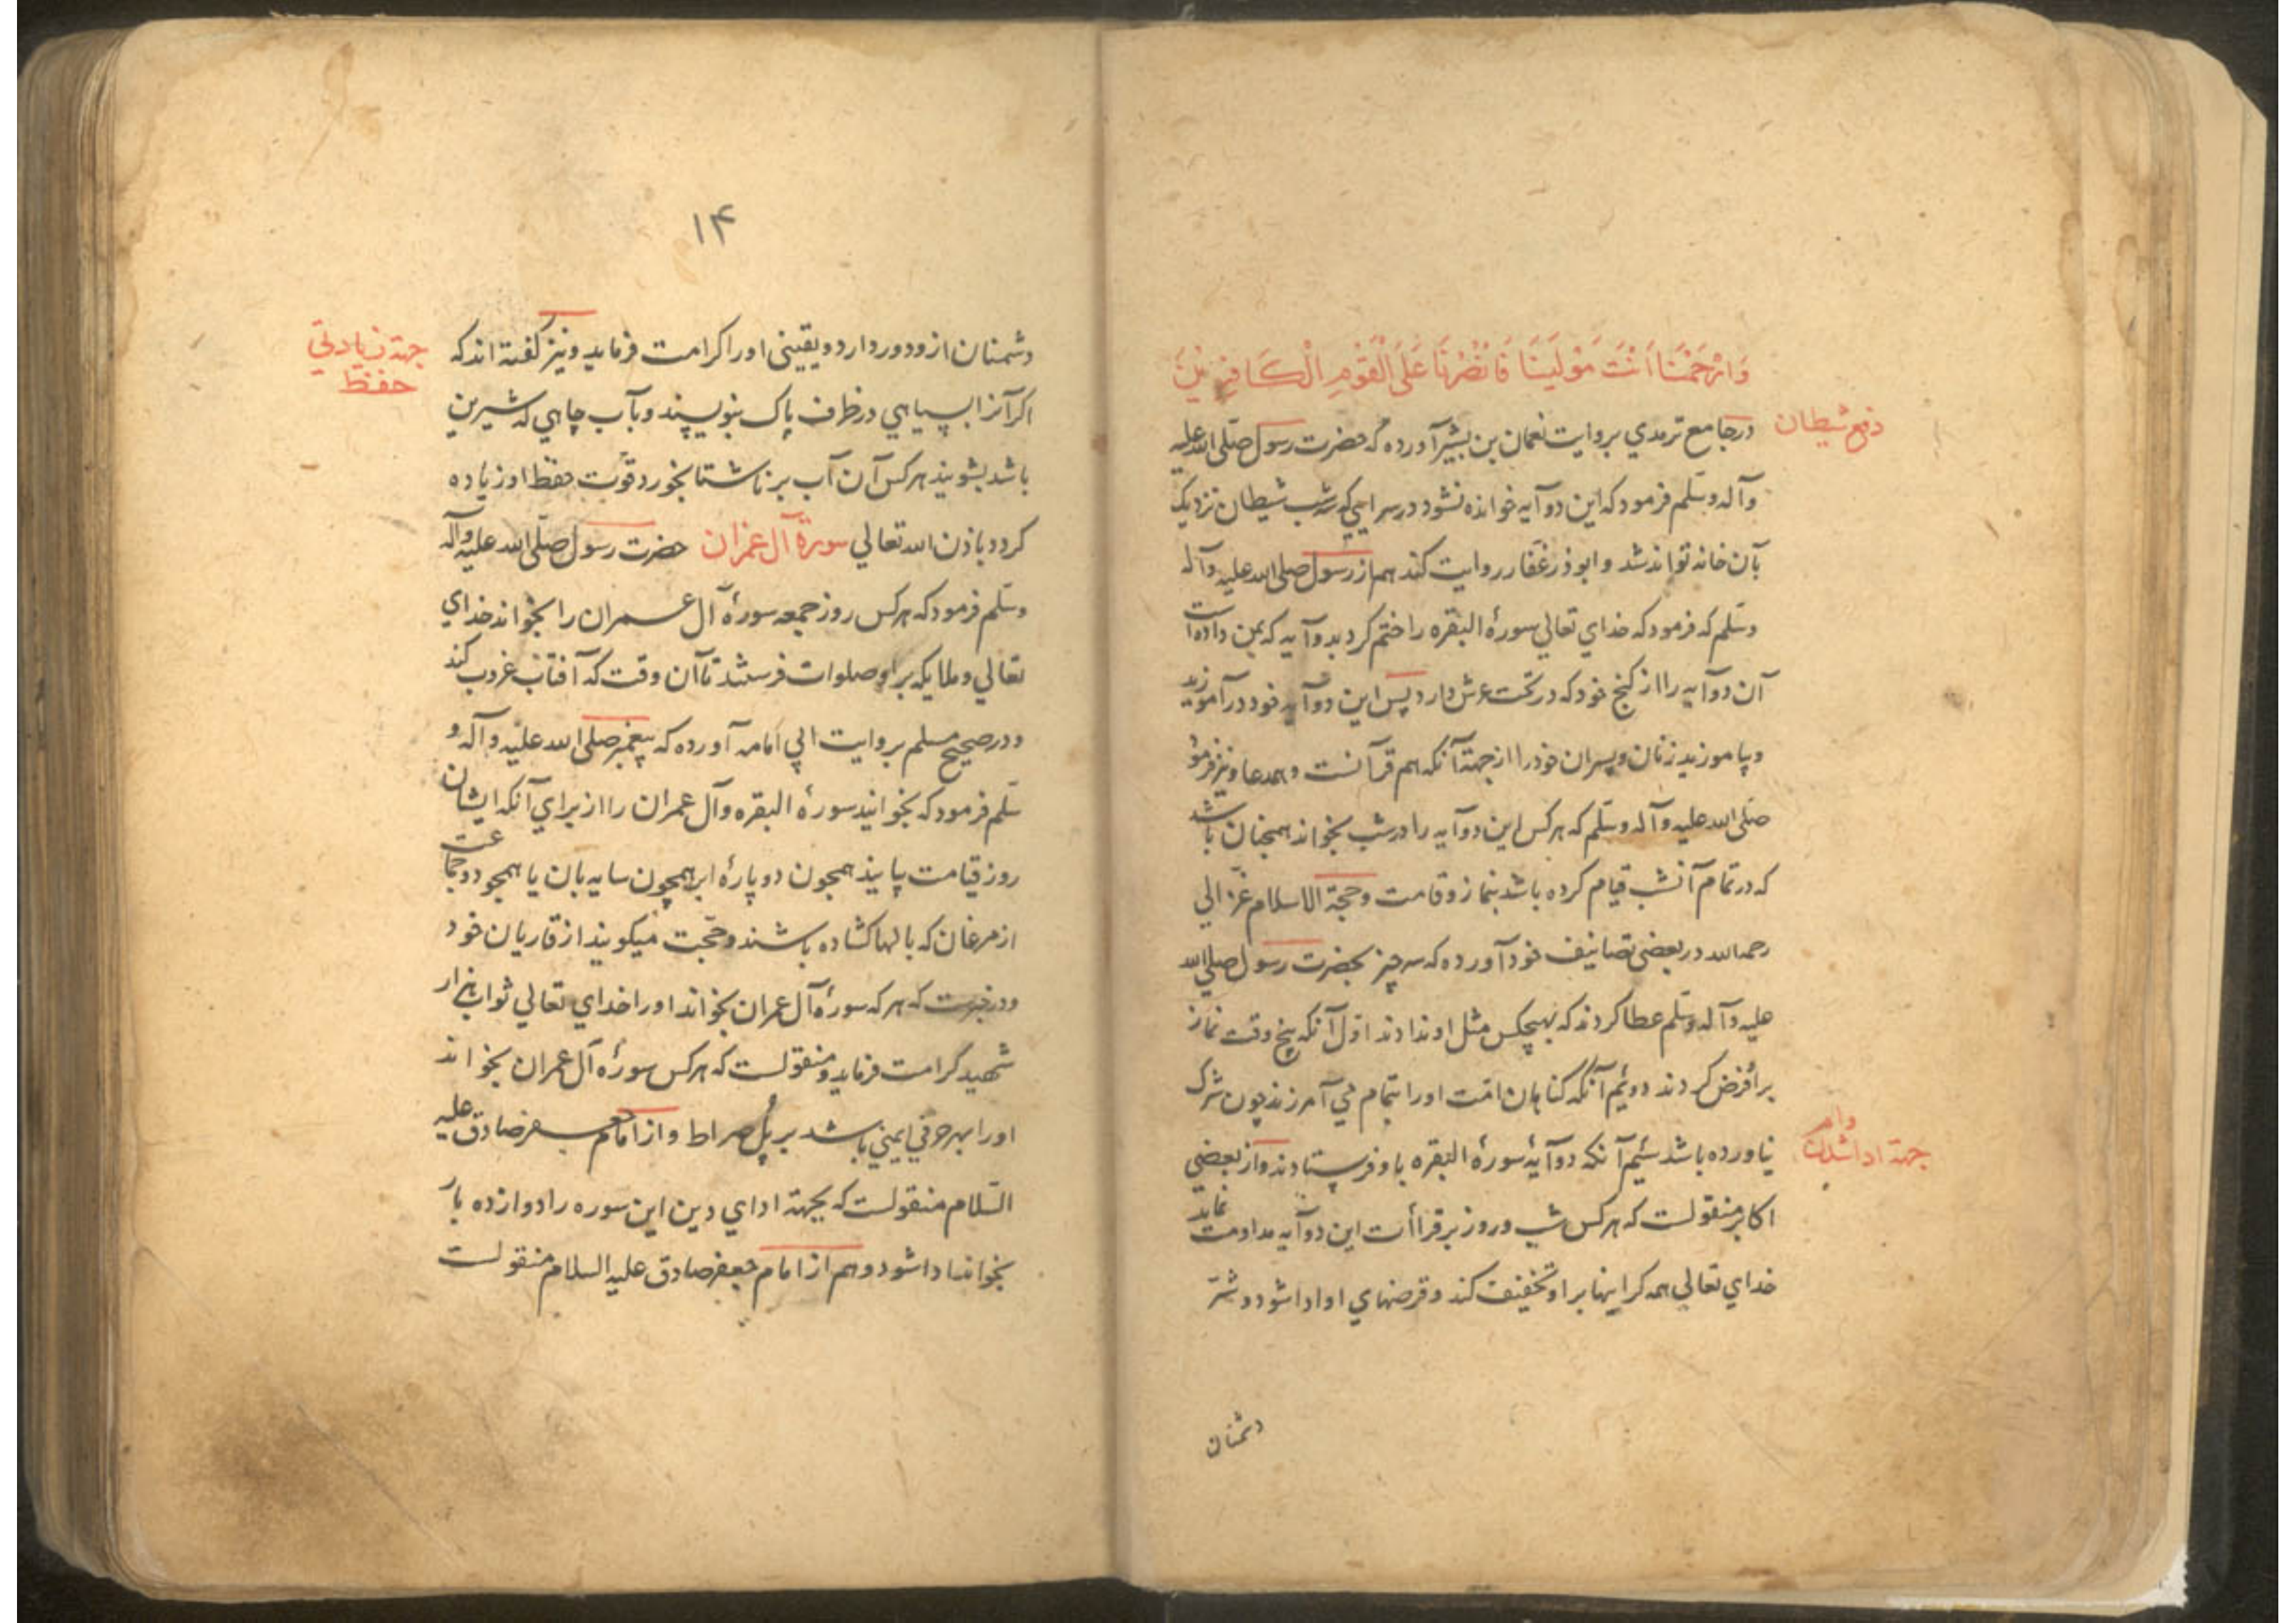 وَارْحَمْنَا اَنْتَ مَوْلَیٰنَا فَانْصُرْنَا عَلَی الْقَوْمِ الْکَافِرِیْنَ
دفع شیطان
در جامع ترمدي بروایت نعمان بن بشیر آورده که حضرت رسول صلّی الله علیه
وآله وسلّم فرمود که این دو آیه خوانده نشود در سرایي که سه شب شیطان نزدیک
بآن خانه تواند شد و ابوذر غفار روایت کند هم از رسول صلی الله علیه وآله
وسلّم که فرمود که خداي تعالي سورهٔ البقره را ختم کرد بدو آیه که بمن داده است
آن دو آیه را از کنج خود که در تحت عرش دارد پس این دو آیه خود در آموزید
و بیاموزید زنان و پسران خود را از جهة آنکه هم قرآنست و هم دعا و نیز فرمود
صلّی الله علیه وآله وسلّم که هر کس این دو آیه را در شب بخواند همچنان باشد
که در تمام آنشب قیام کرده باشد بنماز و قامت و حجة الاسلام غزّالي
رحمه الله در بعضي تصانیف خود آورده که سه چیز بحضرت رسول صلي الله
علیه وآله وسلّم عطا کردند که بهیچکس مثل او ندادند اوّل آنکه پنج وقت نماز
برا و فرض کردند دوئیم آنکه کناهان امّت او را بتمام مي آمرزند چون شرک
جهة ادا شدن وام
نیاورده باشد سئیم آنکه دو آیهٔ سورهٔ البقره باو فرستادند و از بعضي
اکابر منقولست که هر کس شب و روز بر قراأت این دو آیه مداومت نماید
خداي تعالي همه کراینها بر او تخفیف کند و قرضهاي او ادا شود و شرّ
دشمنان
۱۴
دشمنان ازو دور دارد و یقیني او را کرامت فرماید و نیز کفته اند که
جهة زیادتي
حفظ
اکر آنرا بسیاهي در ظرف پاک بنویسند و بآب چاهي که شیرین
باشد بشویند هر کس آن آب بر ناشتا بخورد قوّت حفظ او زیاده
کردد باذن الله تعالي سورة آل عمران حضرت رسول صلّی الله علیه وآله
وسلّم فرمود که هر کس روز جمعه سورهٔ آل عمران را بخواند خداي
تعالي و ملایکه بر او صلوات فرستند تا آن وقت که آفتاب غروب کند
و در صحیح مسلم بروایت ابي امامه آورده که پیغمبر صلی الله علیه وآله و
سلّم فرمود که بخوانید سورهٔ البقره و آل عمران را از براي آنکه ایشان
روز قیامت بیایند همچون دو پارهٔ ابر همچون سایه بان یا همچو دو جماعت
از مرغان که بالها کشاده باشند و حجّت میکویند از قاریان خود
و در خبرست که هر که سورهٔ آل عمران بخواند او را خداي تعالي ثواب هزار
شهید کرامت فرماید و منقولست که هر کس سورهٔ آل عمران بخواند
او را بهر حرفي ایمني باشد بر پُل صراط و از امام جعفر صادق علیه
السّلام منقولست که بجهة اداي دین این سوره را دوازده بار
بخواند ادا شود و هم از امام جعفر صادق علیه السلام منقولست